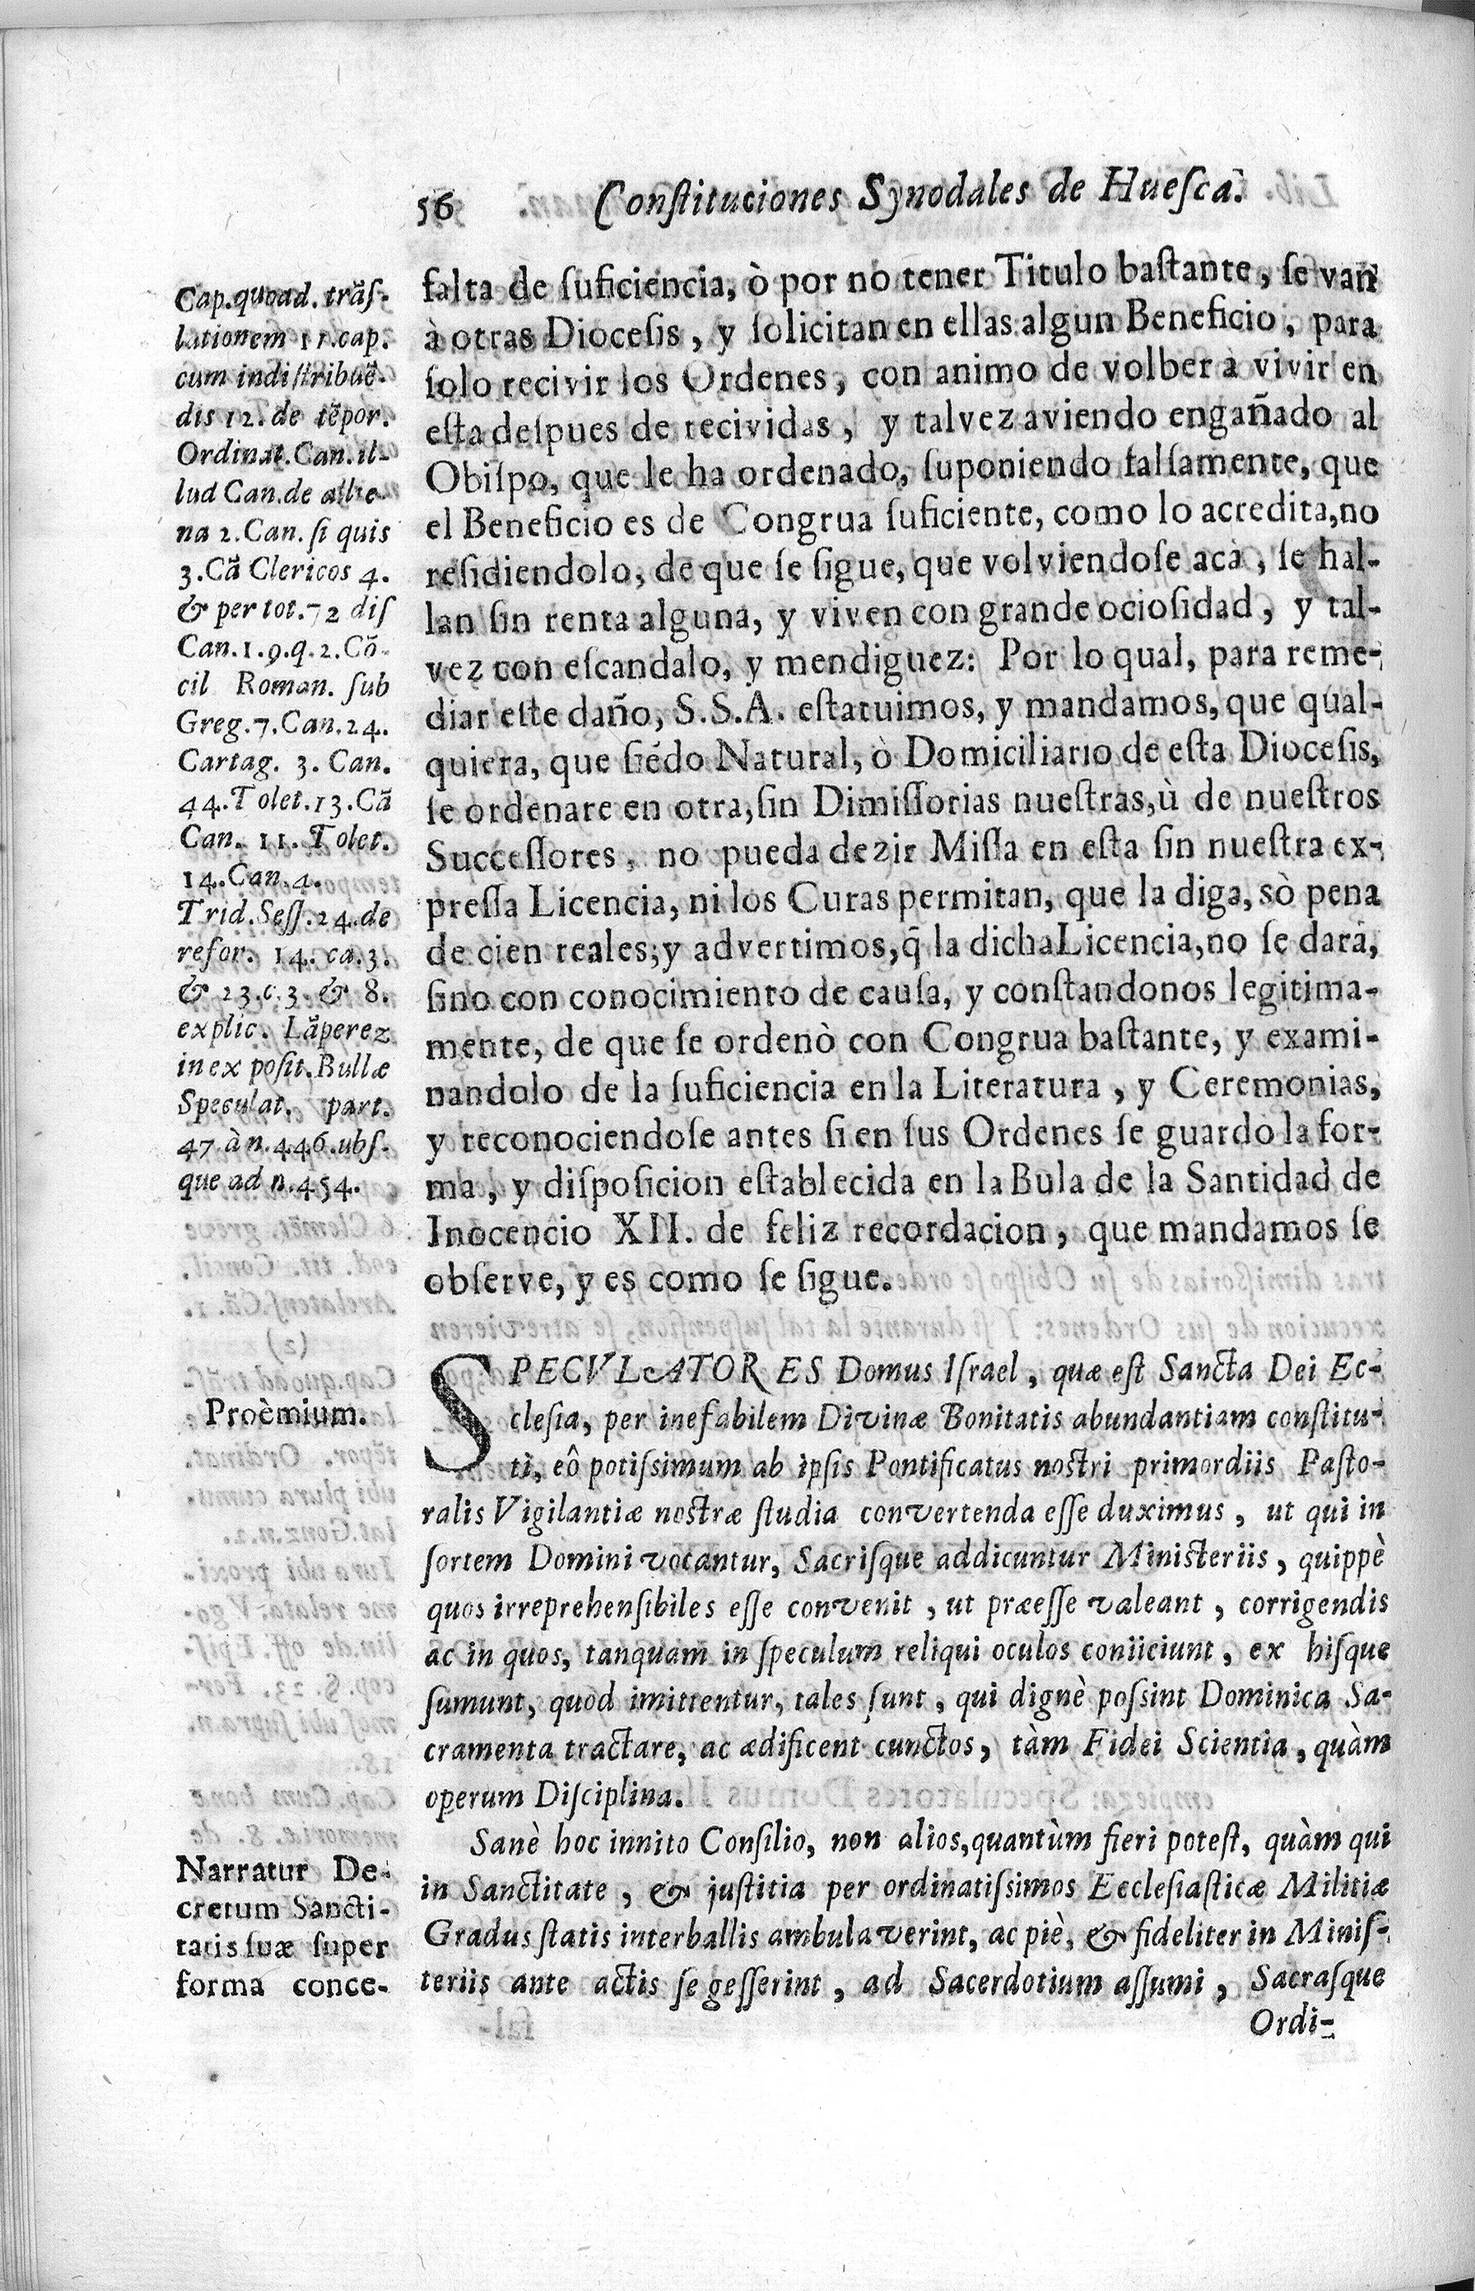 56 Constituciones Synodales de Huesca.
Cap. quoad. trãſ-
lationem 11. cap.
cum indiſtribuē-
dis 12. de tēpor.
Ordinat. Can. il-
lud Can. de alie-
na 2. Can. ſi quis
3. Cã Clericos 4.
& per tot. 72 diſ
Can. 1. 9. q. 2. Cõ-
cil Roman. ſub
Greg. 7. Can. 24.
Cartag. 3. Can.
44. Tolet. 13. Cã
Can. 11. Tolet.
14. Can. 4.
Trid. Seſſ. 24. de
refor. 14. ca. 3.
& 23. c. 3. & 8.
explic. Lãperez
in expoſit. Bullæ
Speculat. part.
47. à n. 446. ubſ-
que ad n. 454.
falta de ſuficiencia, ò por no tener Titulo baſtante, ſe van
à otras Dioceſis, y ſolicitan en ellas algun Beneficio, para
ſolo recivir los Ordenes, con animo de volber a vivir en
eſta deſpues de recividas, y talvez aviendo engañado al
Obiſpo, que le ha ordenado, ſuponiendo falſamente, que
el Beneficio es de Congrua ſuficiente, como lo acredita, no
reſidiendolo, de que ſe ſigue, que volviendoſe acà, ſe hal-
lan ſin renta alguna, y viven con grande ocioſidad, y tal-
vez con eſcandalo, y mendiguez: Por lo qual, para reme-
diar eſte daño, S.S.A. eſtatuimos, y mandamos, que qual-
quiera, que ſiēdo Natural, ò Domiciliario de eſta Dioceſis,
ſe ordenare en otra, ſin Dimiſſorias nueſtras, ù de nueſtros
Succeſſores, no pueda dezir Miſſa en eſta ſin nueſtra ex-
preſſa Licencia, ni los Curas permitan, que la diga, sò pena
de cien reales; y advertimos, q̃ la dicha Licencia, no ſe darà,
ſino con conocimiento de cauſa, y conſtandonos legitima-
mente, de que ſe ordenò con Congrua baſtante, y exami-
nandolo de la ſuficiencia en la Literatura, y Ceremonias,
y reconociendoſe antes ſi en ſus Ordenes ſe guardo la for-
ma, y diſpoſicion eſtablecida en la Bula de la Santidad de
Inocencio XII. de feliz recordacion, que mandamos ſe
obſerve, y es como ſe ſigue.
Proèmium.
SPECVLATORES Domus Iſrael, quæ eſt Sancta Dei Ec-
cleſia, per inefabilem Divinæ Bonitatis abundantiam conſtitu-
ti, eô potiſsimum ab ipſis Pontificatus noſtri primordiis Paſto-
ralis Vigilantiæ noſtræ ſtudia convertenda eſſe duximus, ut qui in
ſortem Domini vocantur, Sacriſque addicuntur Miniſteriis, quippè
quos irreprehenſibiles eſſe convenit, ut præeſſe valeant, corrigendis
ac in quos, tanquam in ſpeculum reliqui oculos coniiciunt, ex hiſque
ſumunt, quod imittentur, tales ſunt, qui dignè poſsint Dominica Sa-
cramenta tractare, ac ædificent cunctos, tàm Fidei Scientia, quàm
operum Diſciplina.
Narratur De-
cretum Sancti-
tatis ſuæ ſuper
forma conce-
Sanè hoc innito Conſilio, non alios, quantùm fieri poteſt, quàm qui
in Sanctitate, & juſtitia per ordinatiſsimos Eccleſiaſticæ Militiæ
Gradus ſtatis interballis ambulaverint, ac piè, & fideliter in Miniſ-
teriis ante actis ſe geſſerint, ad Sacerdotium aſſumi, Sacraſque
Ordi-